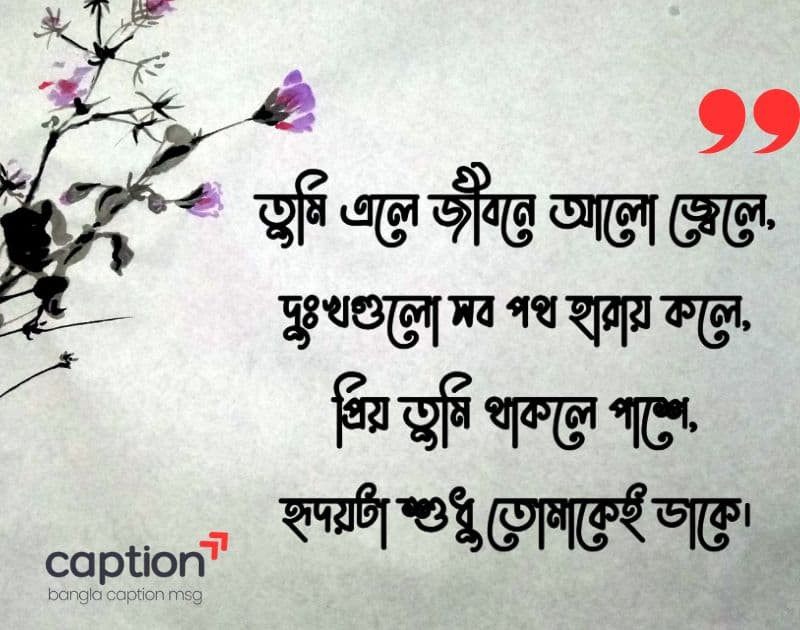 তুমি এলে জীবনে আলো জ্বেলে,
দুঃখগুলো সব পথ হারায় কলে,
প্রিয় তুমি থাকলে পাশে,
হৃদয়টা শুধু তোমাকেই ডাকে।
caption
bangla caption msg